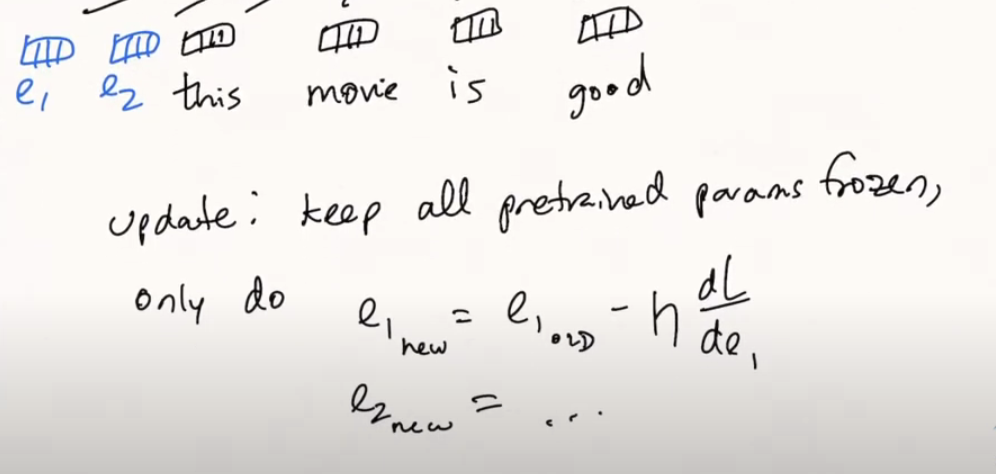 e₁ e₂ this movie is good
update: keep all pretrained params frozen,
only do e₁ new = e₁ OLD - η dL/de₁
e₂ new = ...